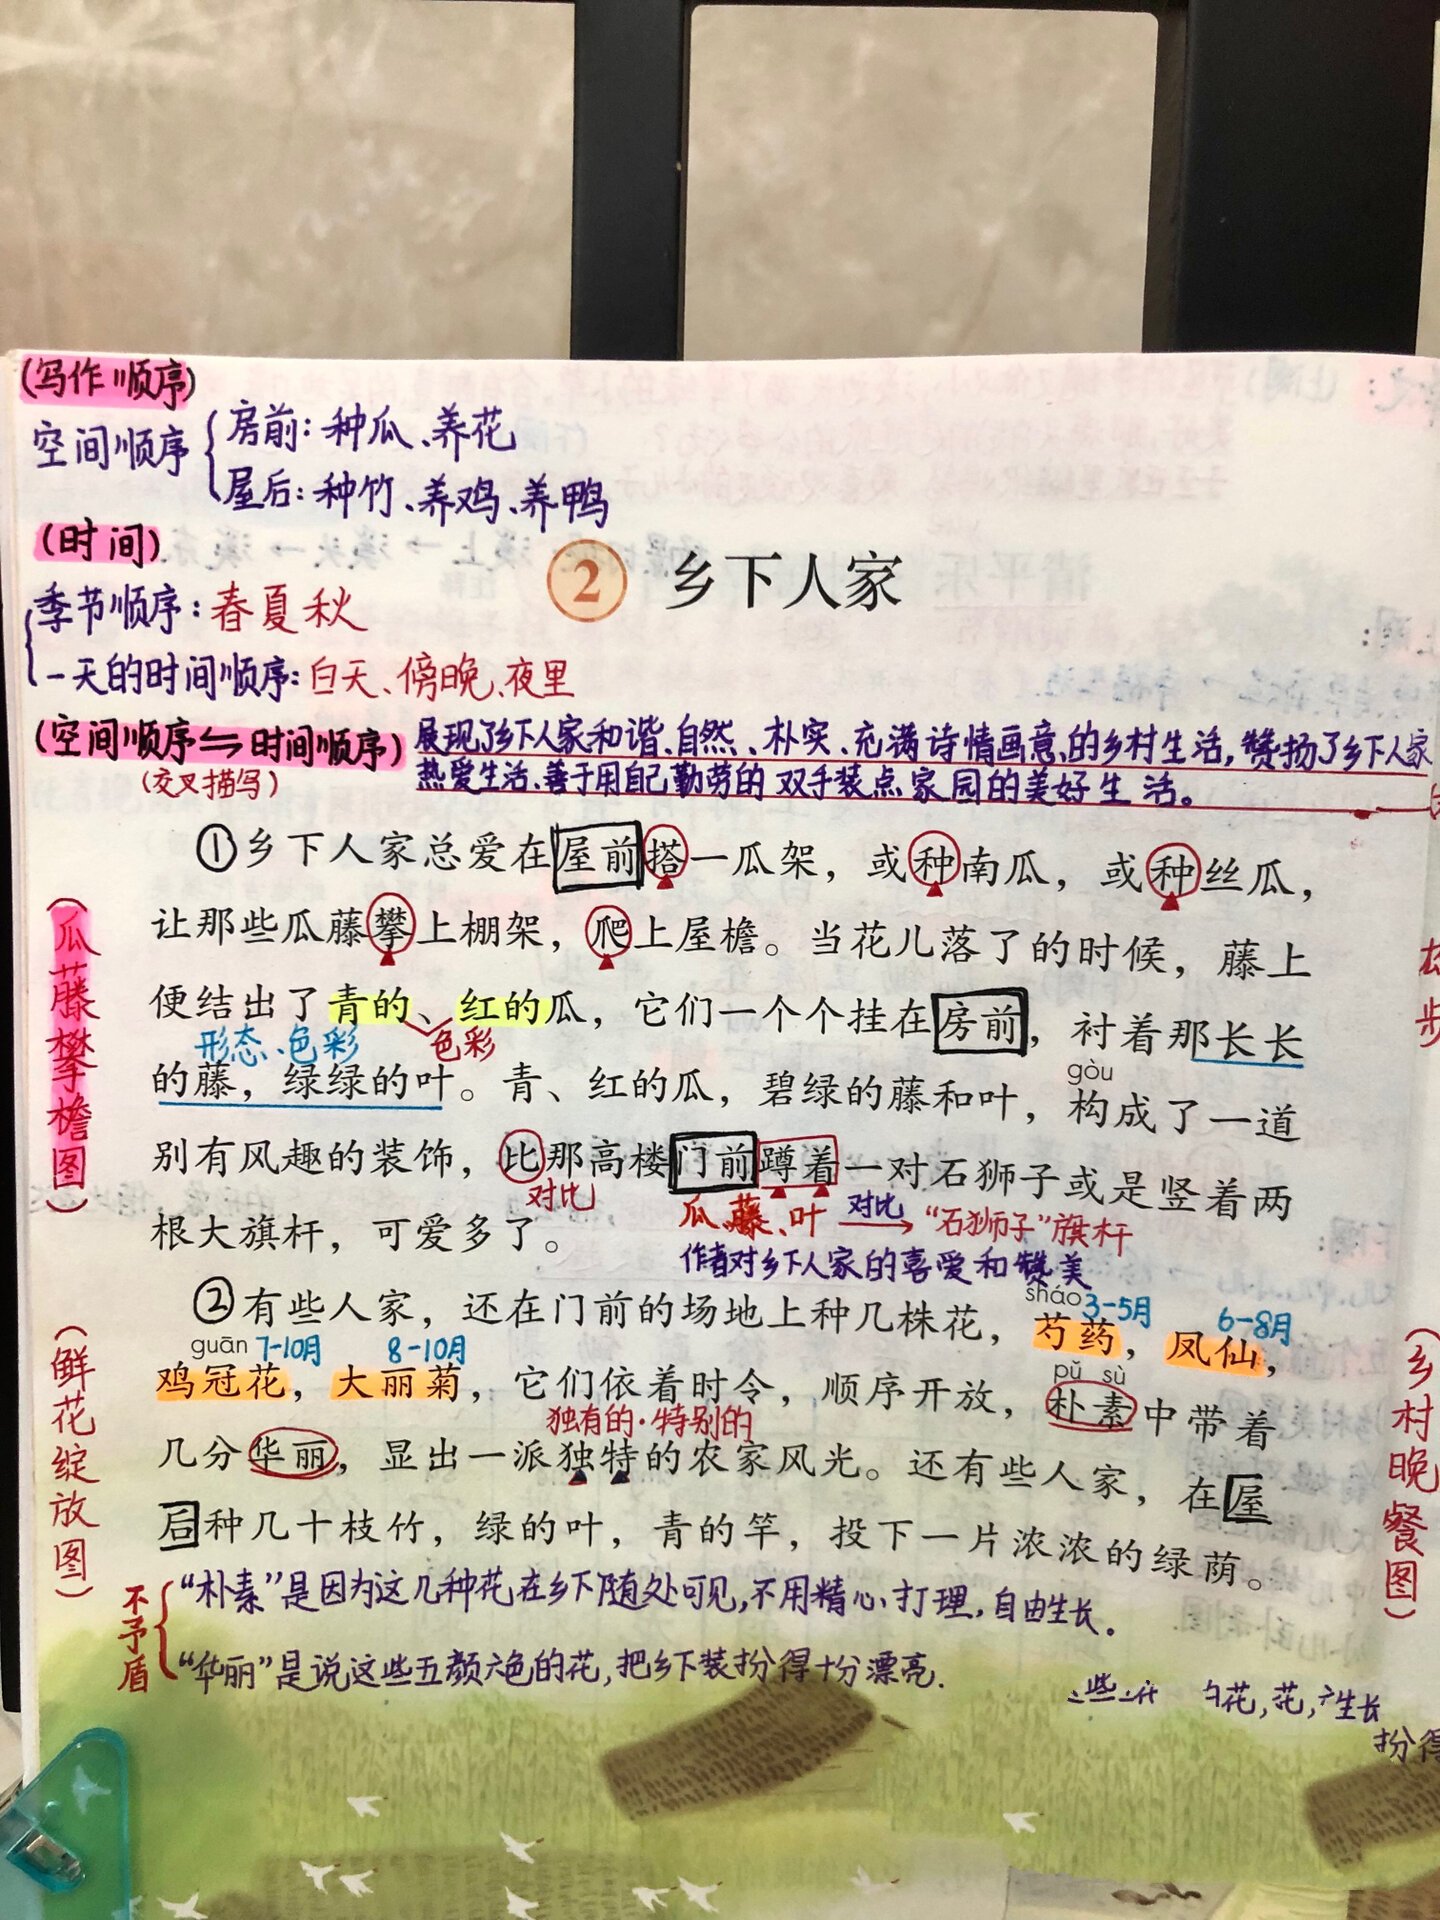 (写作顺序)
空间顺序
房前：种瓜、养花
屋后：种竹、养鸡、养鸭
(时间)
2 乡下人家
季节顺序：春夏秋
一天的时间顺序：白天、傍晚、夜里
(空间顺序⇋时间顺序)
(交叉描写)
展现了乡下人家和谐、自然、朴实、充满诗情画意的乡村生活，赞扬了乡下人家
热爱生活、善于用自己勤劳的双手装点家园的美好生活。
①乡下人家总爱在屋前搭一瓜架，或种南瓜，或种丝瓜，
让那些瓜藤攀上棚架，爬上屋檐。当花儿落了的时候，藤上
便结出了青的、红的瓜，它们一个个挂在房前，衬着那长长
形态、色彩
色彩
gòu
的藤，绿绿的叶。青、红的瓜，碧绿的藤和叶，构成了一道
别有风趣的装饰，比那高楼门前蹲着一对石狮子或是竖着两
对比
瓜、藤、叶 对比→ “石狮子”旗杆
根大旗杆，可爱多了。
作者对乡下人家的喜爱和赞美
(瓜藤攀檐图)
sháo 3-5月
6-8月
②有些人家，还在门前的场地上种几株花，芍药，凤仙，
guān 7-10月
8-10月
pǔ sù
鸡冠花，大丽菊，它们依着时令，顺序开放，朴素中带着
独有的·特别的
几分华丽，显出一派独特的农家风光。还有些人家，在屋
后种几十枝竹，绿的叶，青的竿，投下一片浓浓的绿荫。
(鲜花绽放图)
(乡村晚餐图)
不矛盾
“朴素”是因为这几种花在乡下随处可见，不用精心打理，自由生长。
“华丽”是说这些五颜六色的花，把乡下装扮得十分漂亮.
花，花，生长
扮得